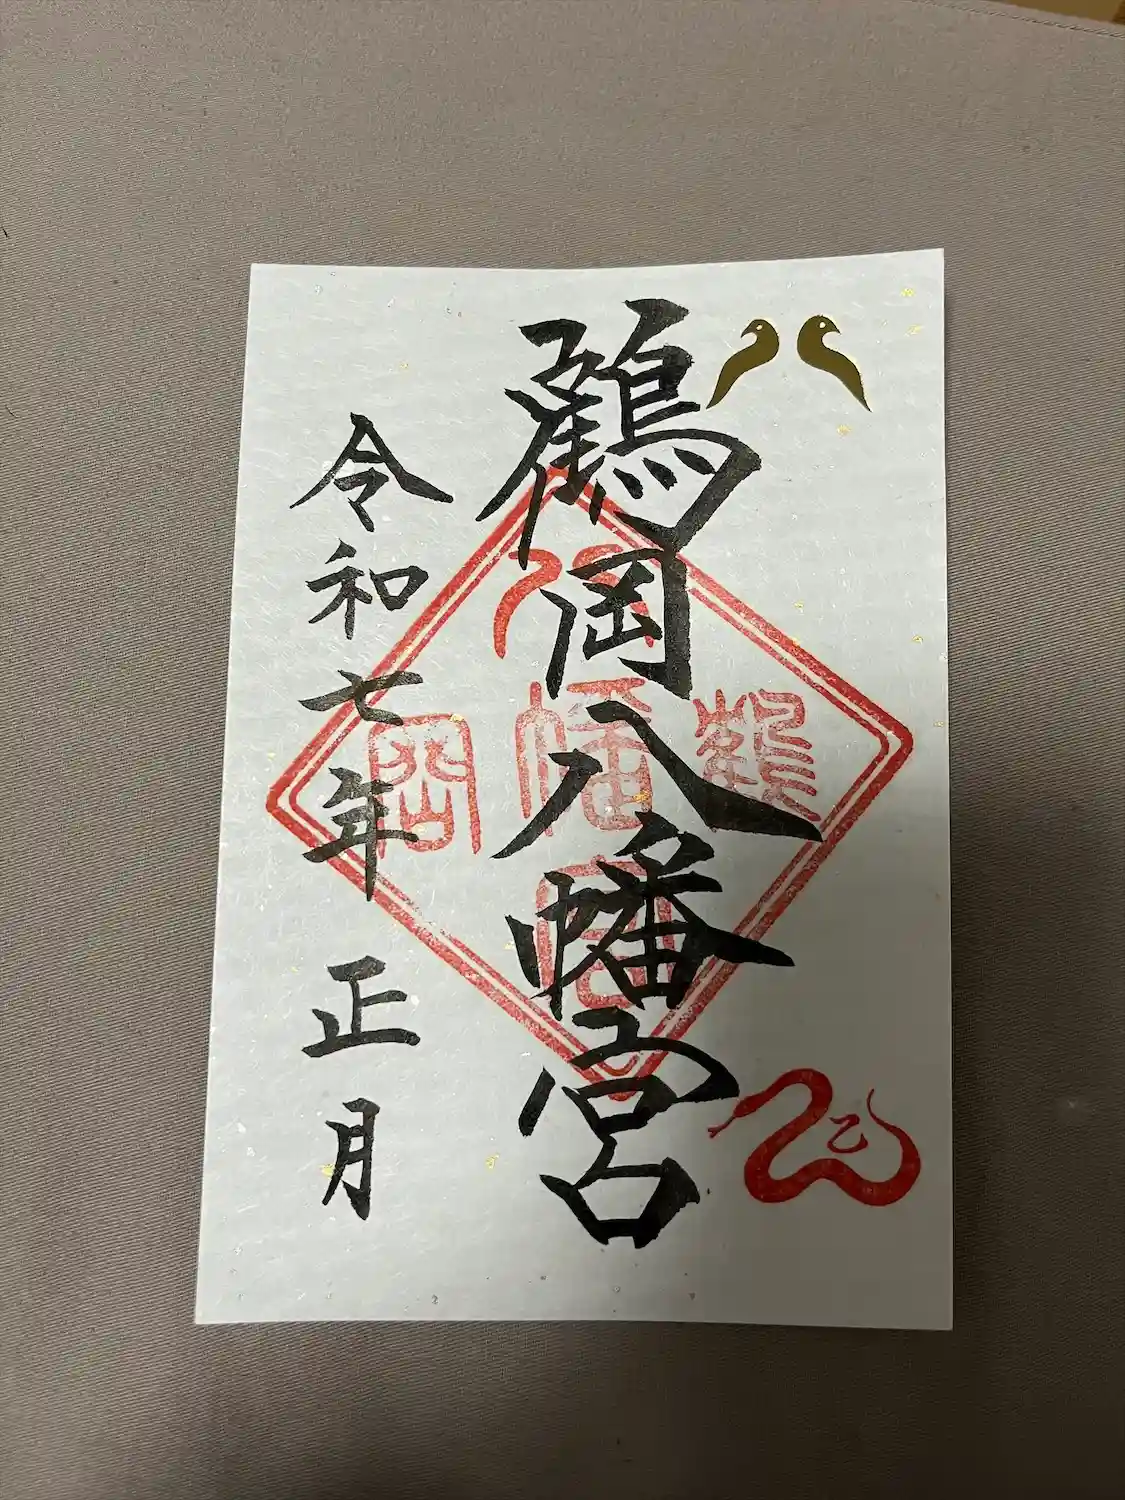 鶴岡八幡宮
令和七年正月
鶴
八幡宮
岡
巳